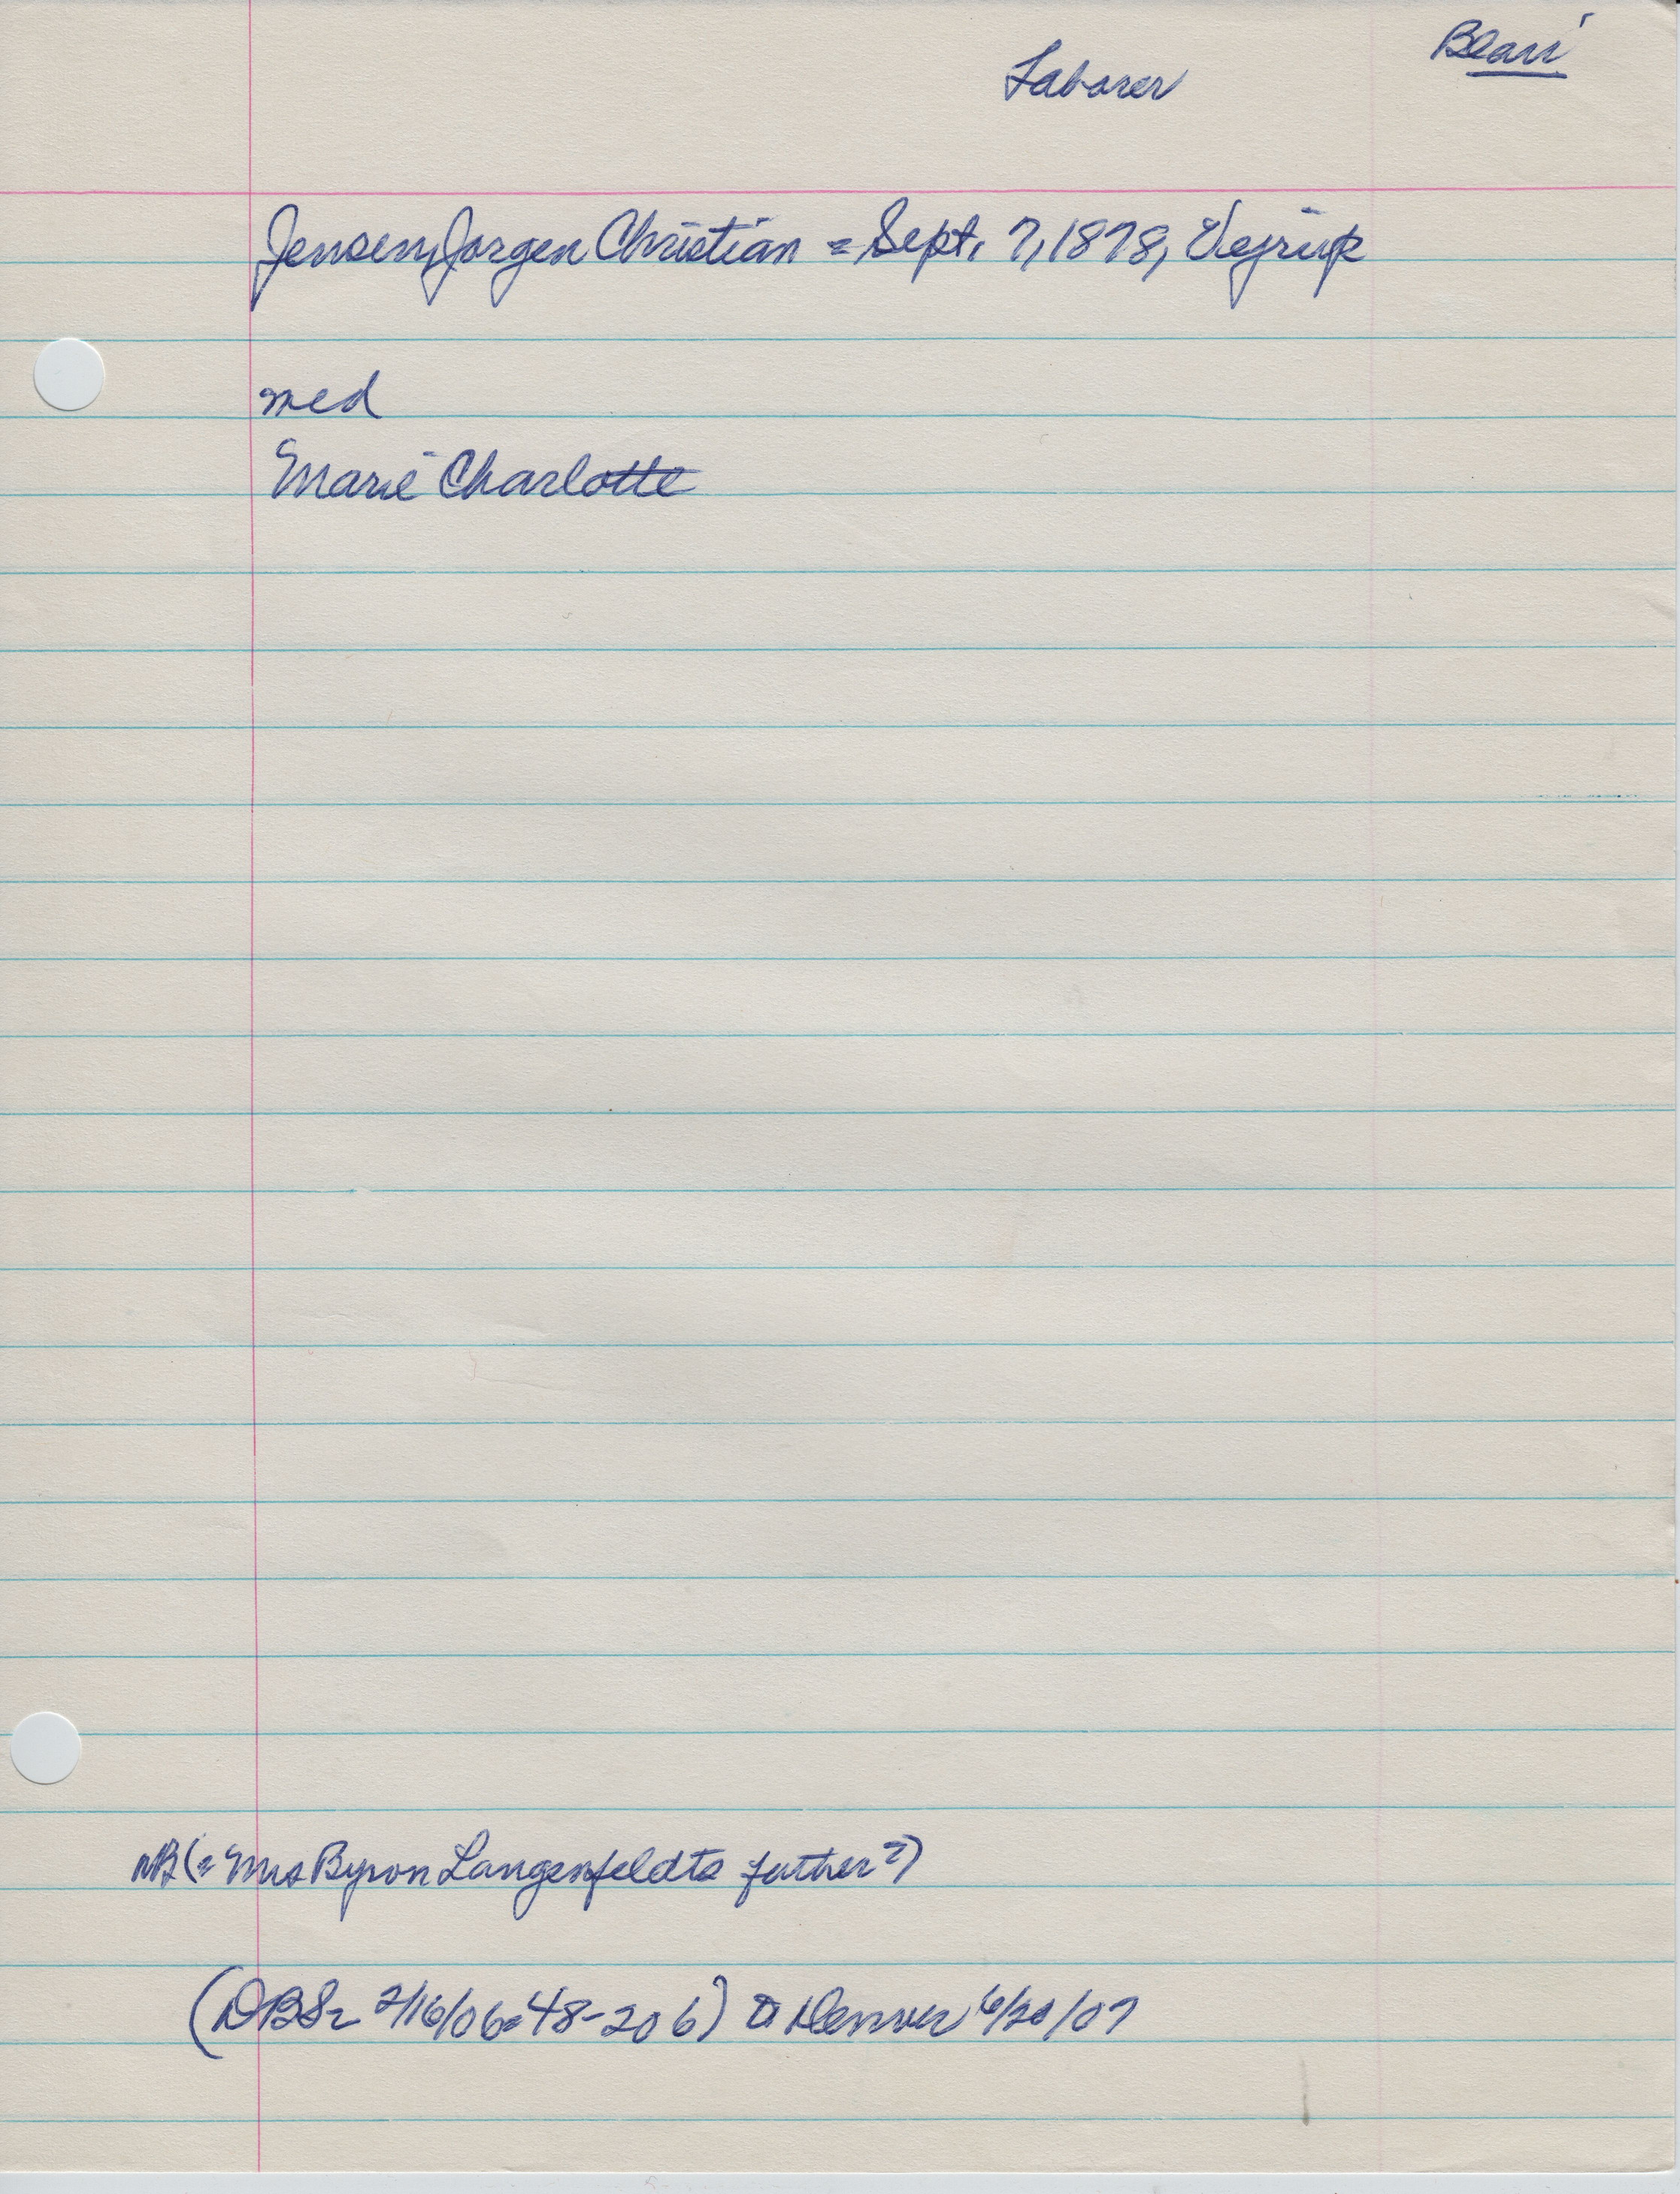 Blair
Laborer
Jensen, Jorgen Christian = Sept. 7, 1878, Vejrup
med
Marie Charlotte
NB (= Mrs Byron Langenfeldts father?)
(DBS= 2/16/06=48-206) Denver 6/20/07